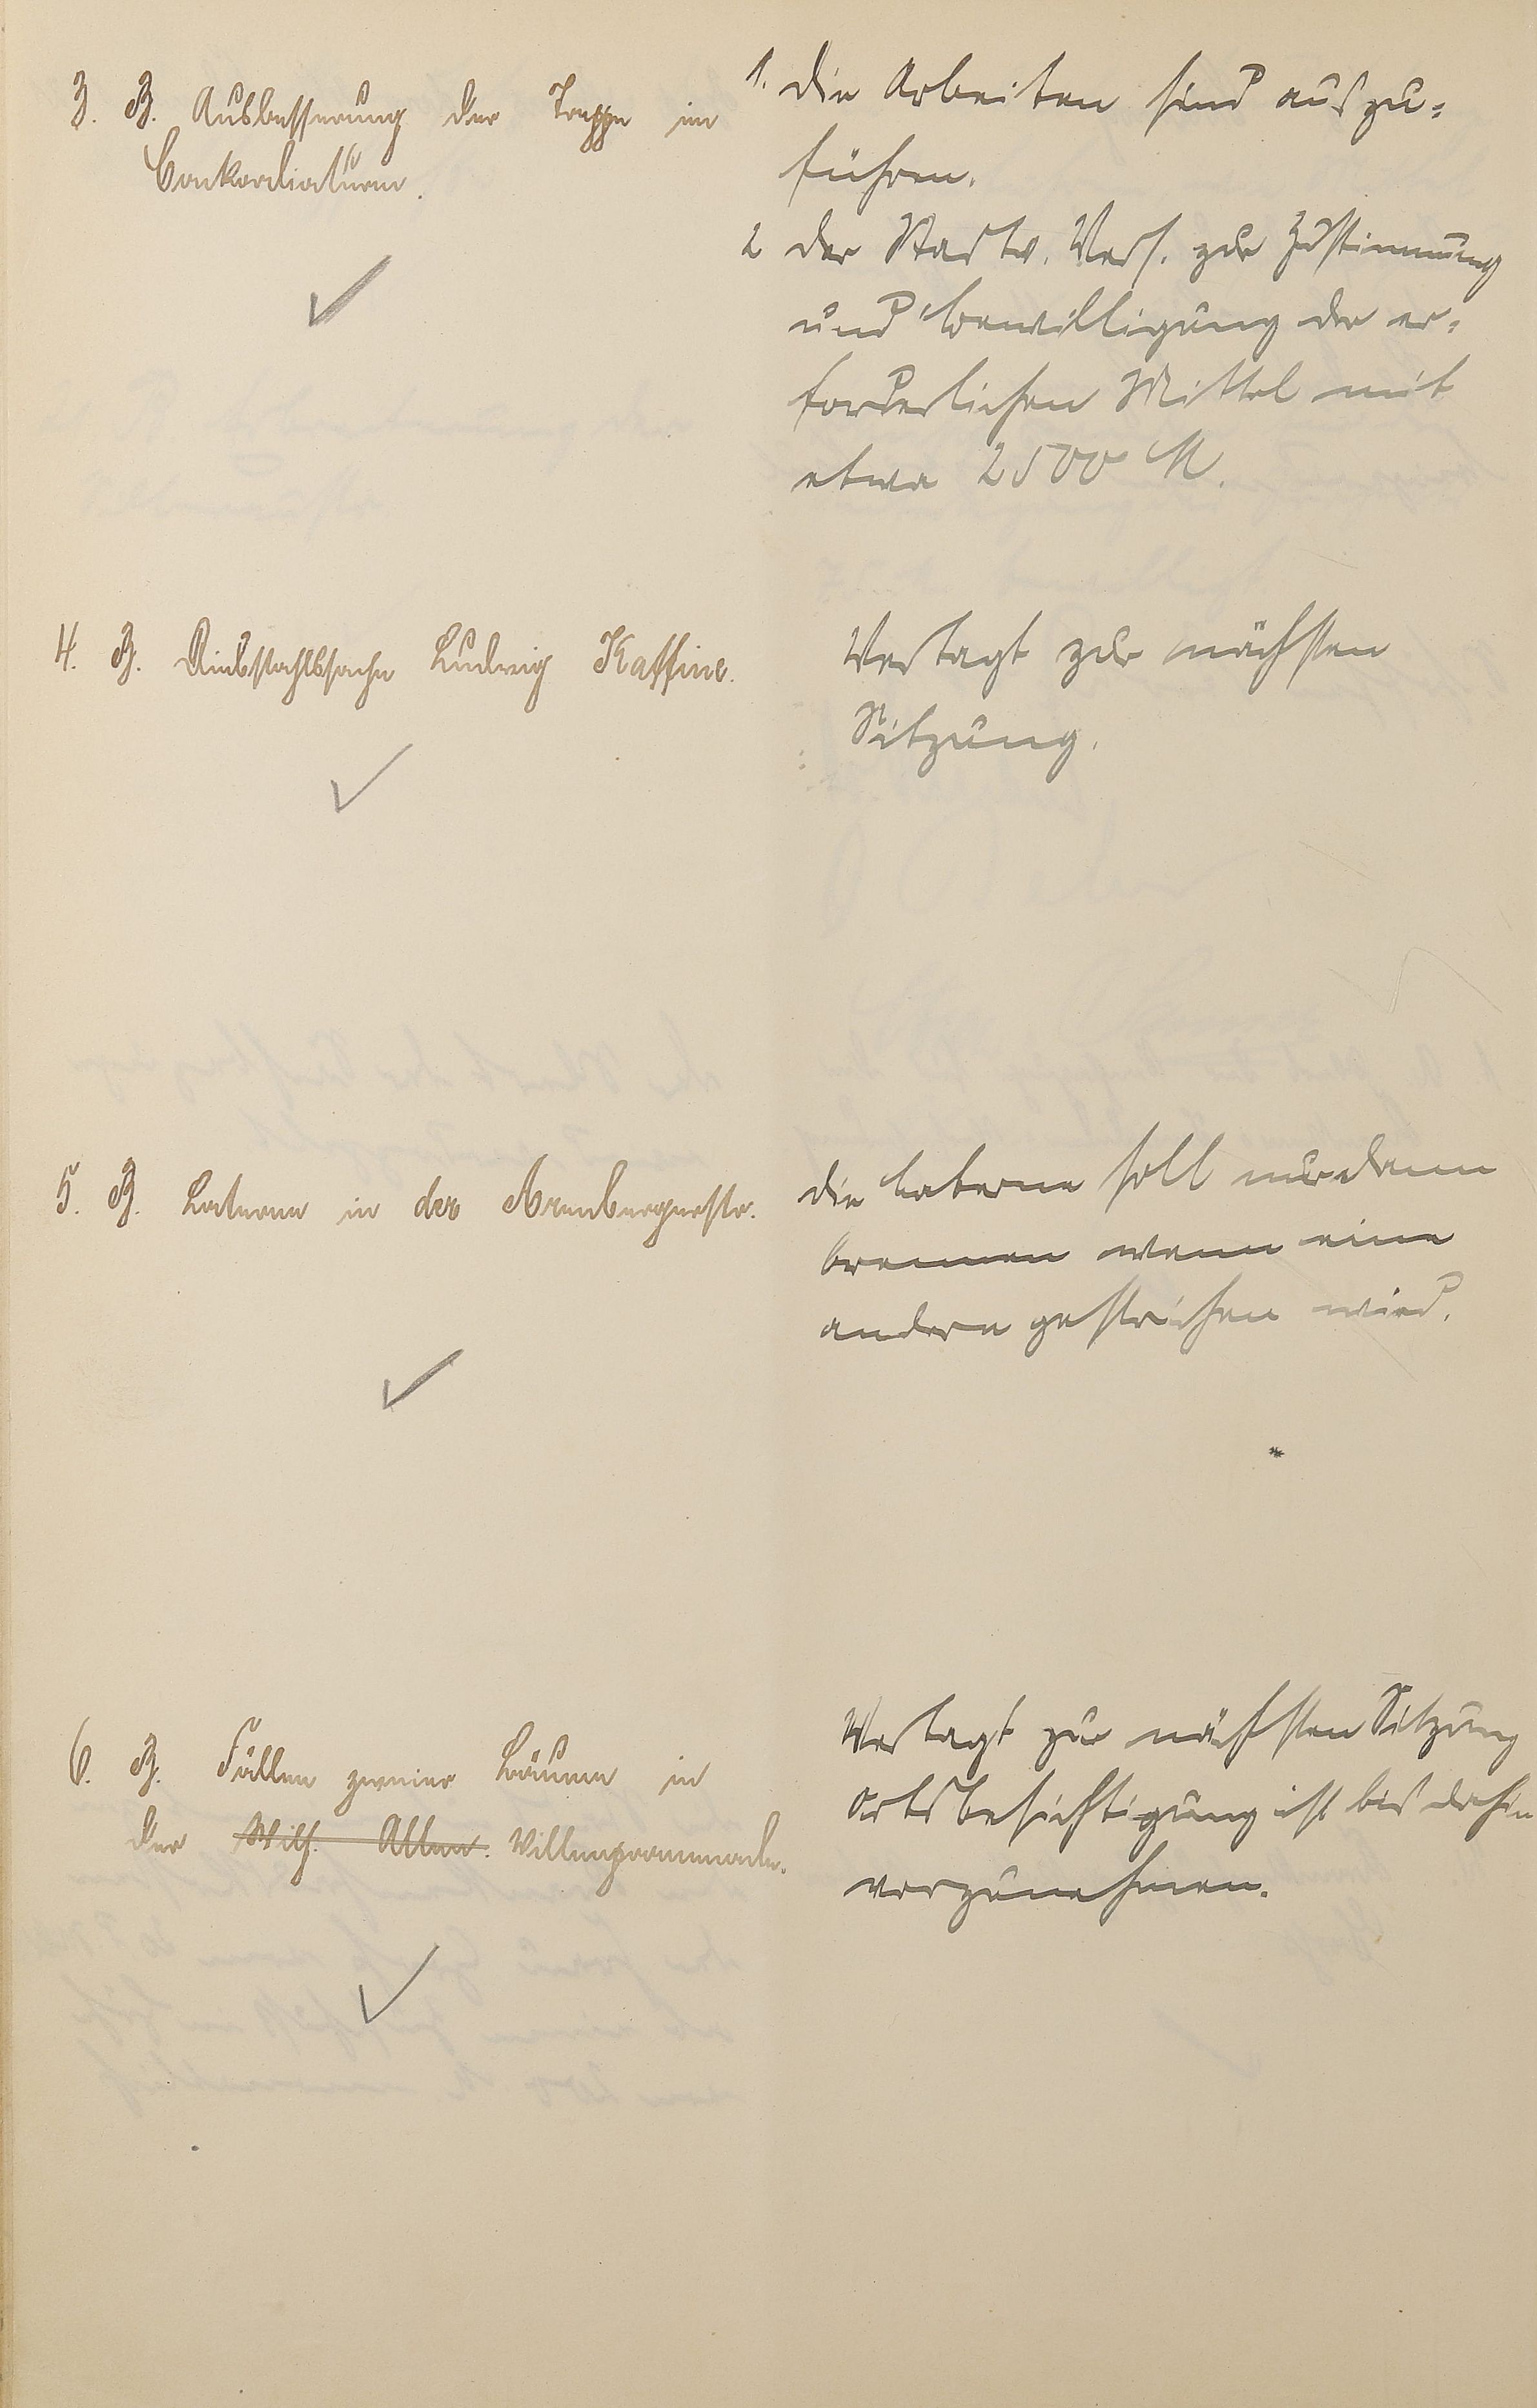 3. B. Ausbesserung der Treppe im
Conkordiaturm.
1. Die Arbeiten sind auszu-
führen.
2 der Stadtv. Vers. zur Zustimmung
und Bewilligung der er-
forderlichen Mittel mit
etwa 2500 M.
4. B. Diebstahlssache Ludwig Kaffine.
Vertagt zur nächsten
Sitzung.
5. B. Laterne in der Arenbergerstr.
die Laterne soll nur dann
brennen wenn eine
andere gestrichen wird.
6. B. Fällen zweier Bäume in
der Wilh. Allee. Villenpromenade.
Vertagt zur nächsten Sitzung
Ortsbesichtigung ist bis dahin
vorzunehmen.